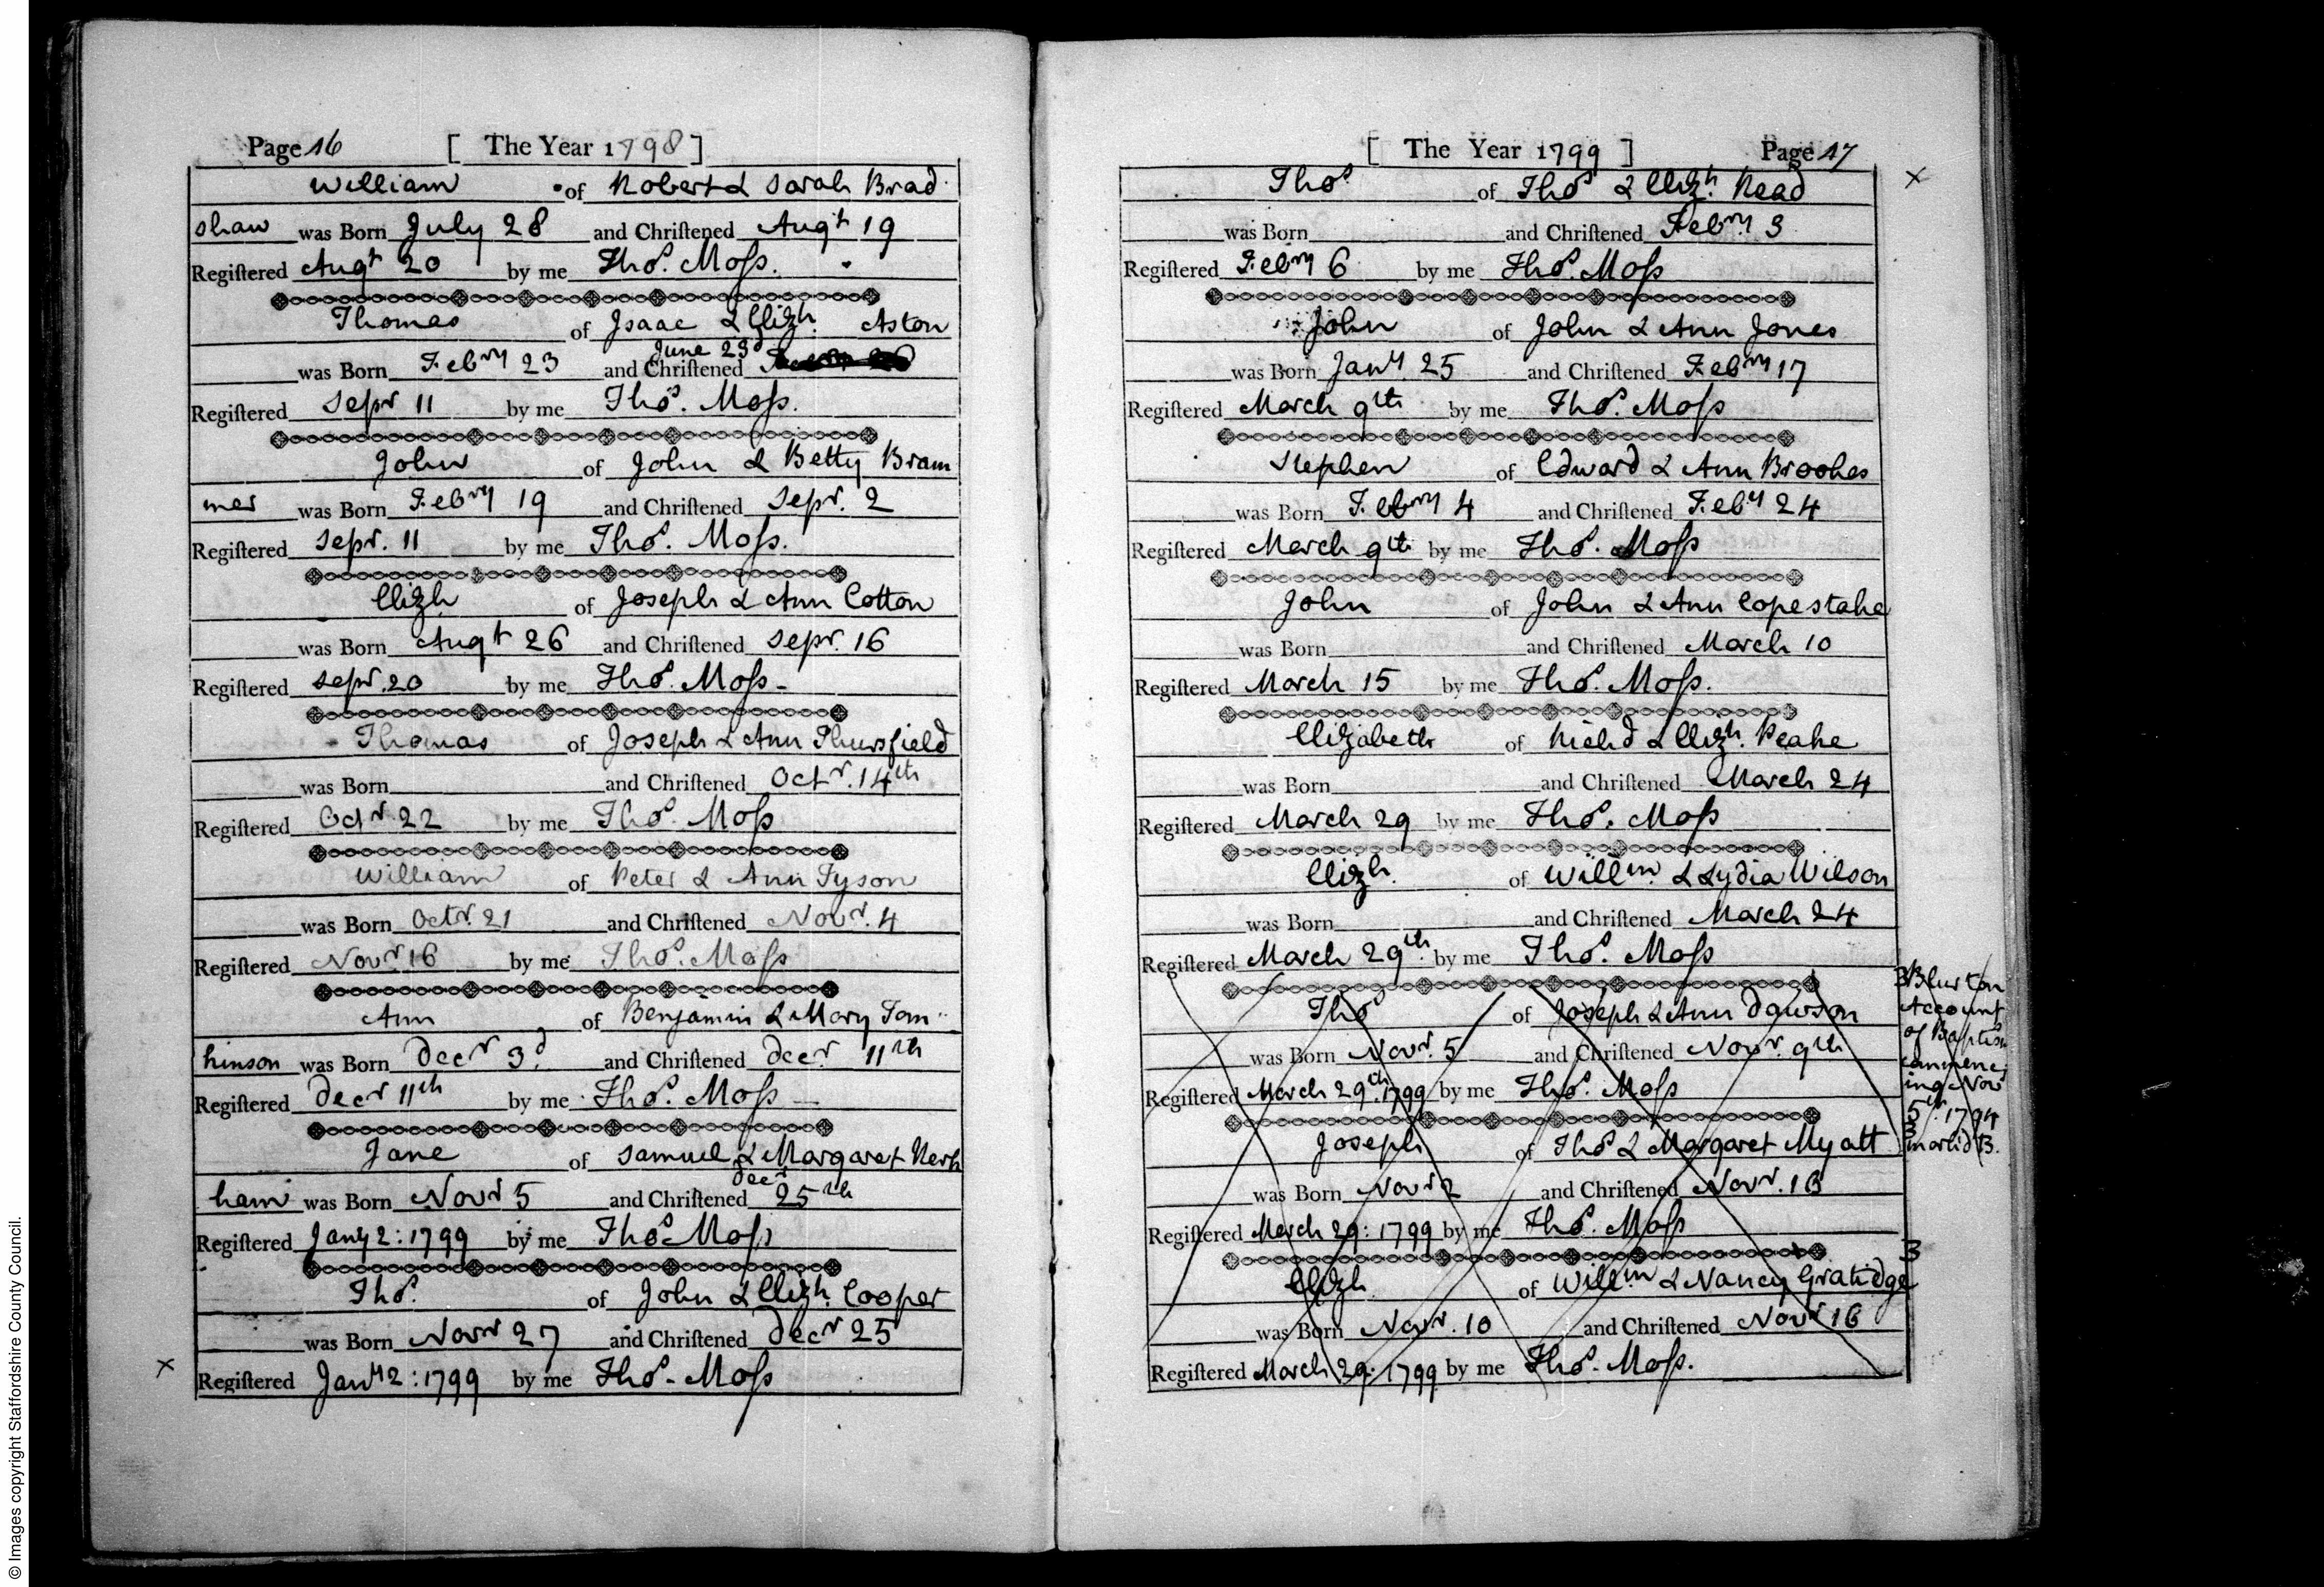 Page 16 [ The Year 1798 ]
William of Robert & Sarah Brad
shaw was Born July 28 and Chriſtened Augt 19
Regiſtered Augt 20 by me Thos. Moſs.
Thomas of Isaac & Elizh. Aston
June 23d
was Born Febry 23 and Chriſtened
Regiſtered Sepr 11 by me Thos. Moſs.
John of John & Betty Bram
mer was Born Febry 19 and Chriſtened Sepr. 2
Regiſtered Sepr. 11 by me Thos. Moſs.
Elizh of Joseph & Ann Cotton
was Born Augt 26 and Chriſtened Sepr. 16
Regiſtered Sepr. 20 by me Thos. Moſs
Thomas of Joseph & Ann Thursfield
was Born and Chriſtened Octr. 14th
Regiſtered Octr. 22 by me Thos. Moſs
William of Peter & Ann Tyson
was Born Octr. 21 and Chriſtened Novr. 4
Regiſtered Novr 16 by me Thos. Moſs
Ann of Benjamin & Mary Tom
kinson was Born Decr 3d. and Chriſtened Decr. 11th
Regiſtered Decr 11th by me Thos. Moſs
Jane of Samuel & Margaret Kerk
Decr
ham was Born Novr 5 and Chriſtened 25th
Regiſtered Jany 2: 1799 by me Thos Moſs
Thos. of John & Elizh. Cooper
was Born Novr 27 and Chriſtened Decr 25
× Regiſtered Jany 2: 1799 by me Thos. Moſs
[ The Year 1799 ] Page 17
Thos of Thos & Elizh. Read ×
was Born and Chriſtened Febry. 3
Regiſtered Febry 6 by me Thos. Moſs
John of John & Ann Jones
was Born Jany. 25 and Chriſtened Febry 17
Regiſtered March 9th by me Thos. Moſs
Stephen of Edward & Ann Brookes
was Born Febry 4 and Chriſtened Feby 24
Regiſtered March 9th by me Thos. Moſs
John of John & Ann Copestake
was Born and Chriſtened March 10
Regiſtered March 15 by me Thos. Moſs.
Elizabeth of Richd & Elizh. Peake
was Born and Chriſtened March 24
Regiſtered March 29 by me Thos. Moſs
Elizh. of Willm. & Lydia Wilson
was Born and Chriſtened March 24
Regiſtered March 29th. by me Thos. Moſs
Thos of Joseph & Ann Dawson
was Born Novr. 5 and Chriſtened Novr. 9th
Regiſtered March 29th. 1799 by me Thos. Moſs
Joseph of Thos & Margaret Myatt
was Born Novr 2 and Chriſtened Novr. 16
Regiſtered March 29: 1799 by me Thos. Moſs
Elizh. of Willm & Nancy Gratidge
was Born Novr. 10 and Chriſtened Novr 16
Regiſtered March 29: 1799 by me Thos. Moſs.
Blurton
Account
of Baptism
commenc
ing Nov
5th. 1794
markd B.
© Images copyright Staffordshire County Council.